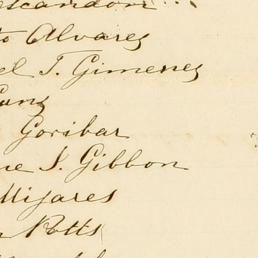 Escandon
to Alvares
el T. Gimenes
Goribar
ne S. Gibbon
Mijares
Potts